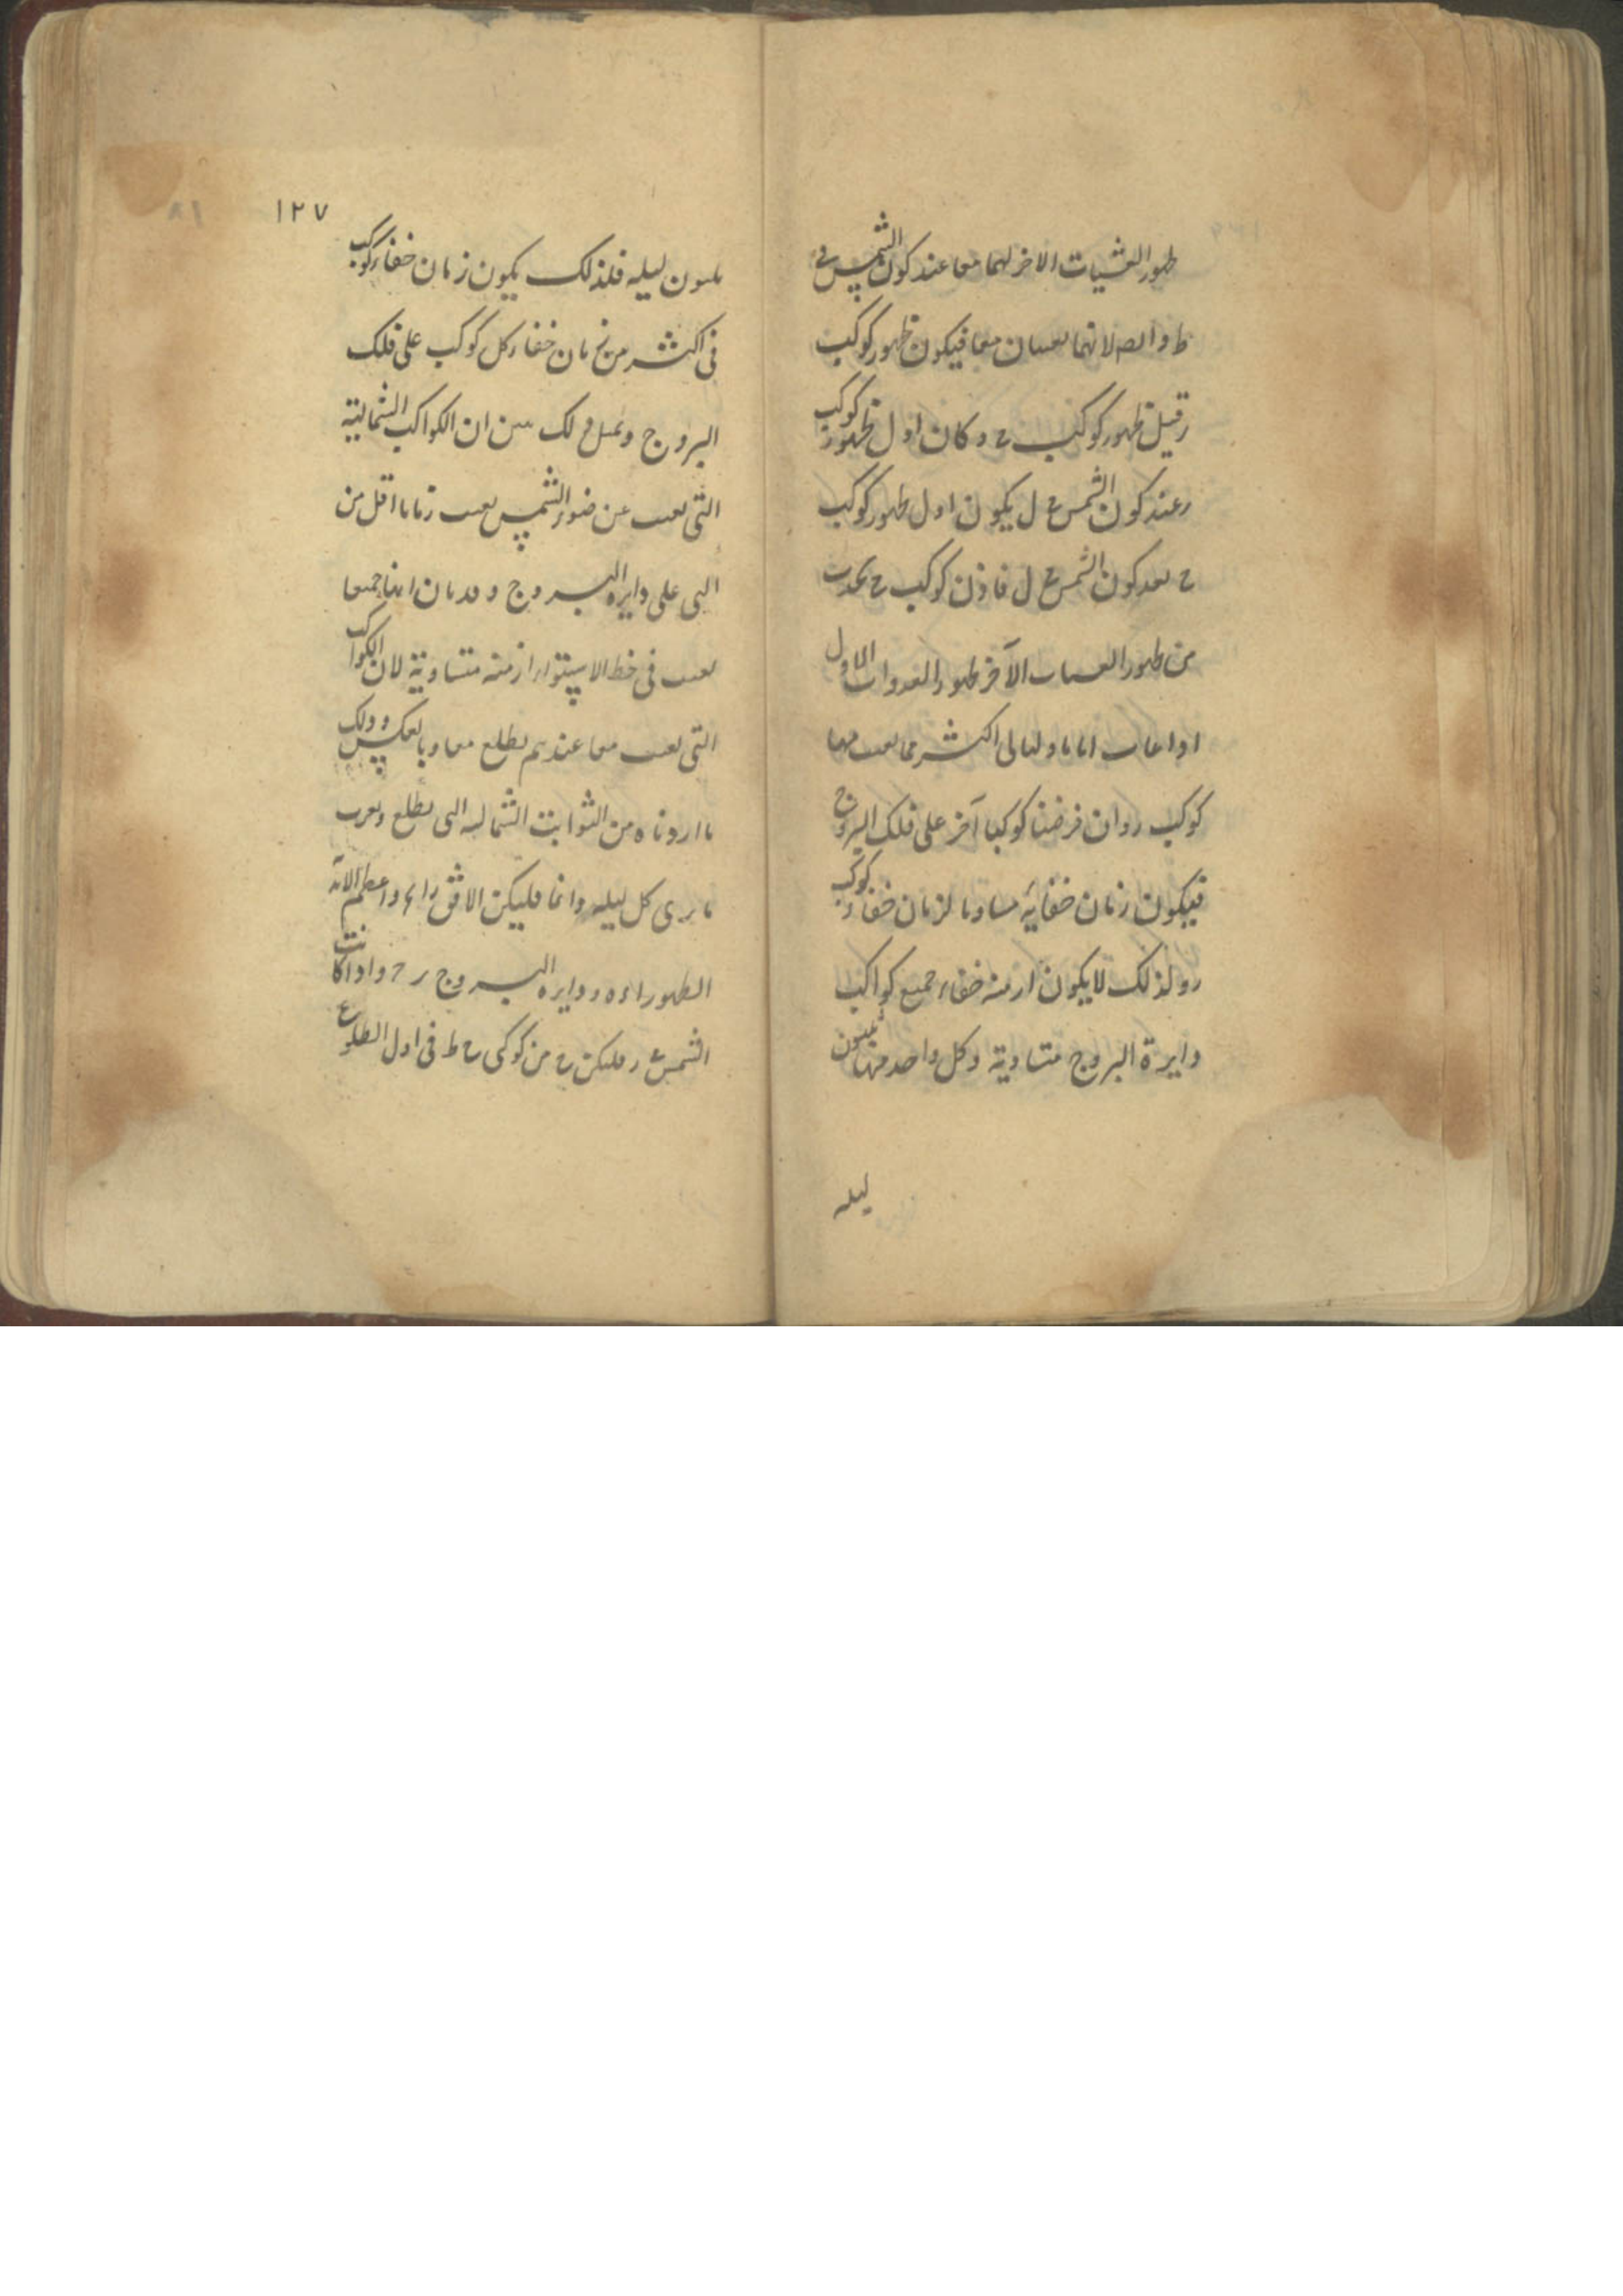 ظهور العشيات الاخر لهما معا عند كون الشمس في
ط و ايضا لانهما يغيبان معا فيكون ظهور كوكب
ر قبل ظهور كوكب ح و كان اول ظهور كوكب
ر عند كون الشمس ع ل يكون اول ظهور كوكب
ح بعد كون الشمس ع ل فاذن كوكب ح يحدث
من ظهور العشيات الآخر ظهور الغدوات الاول
اذا غاب اياما و ليالى اكثر مما يغيب فيها
كوكب ر و ان فرضنا كوكبا آخر على فلك البروج
فيكون زمان خفائه مساويا لزمان خفاء كوكب
ر و لذلك لا يكون ازمنه خفاء جميع كواكب
دايرة البروج متساوية و كل واحد منها ثلثون
ليله
١٢٧
ثلثون ليله فلذلك يكون زمان خفاء كوكب
فى اكثر من زمان خفاء كل كوكب على فلك
البروج و بمثل ذلك يبين ان الكواكب الشمالية
التى تغيب عن ضوء الشمس تغيب زمانا اقل من
التى على دايره البروج و قد بان انها جميعا
تغيب فى خط الاستواء ازمنه متساوية لان الكواكب
التى تغيب معا عندهم تطلع معا و بالعكس و ذلك
ما اردناه من الثوابت الشماليه التى تطلع و تغرب
ما يرى كل ليله دائما فليكن الافق واعظم الابديه
الظهور و دايره البروج ر ح و اذا كانت
الشمس ر فليكن ح من كوكبى ح ط فى اول الطلوع